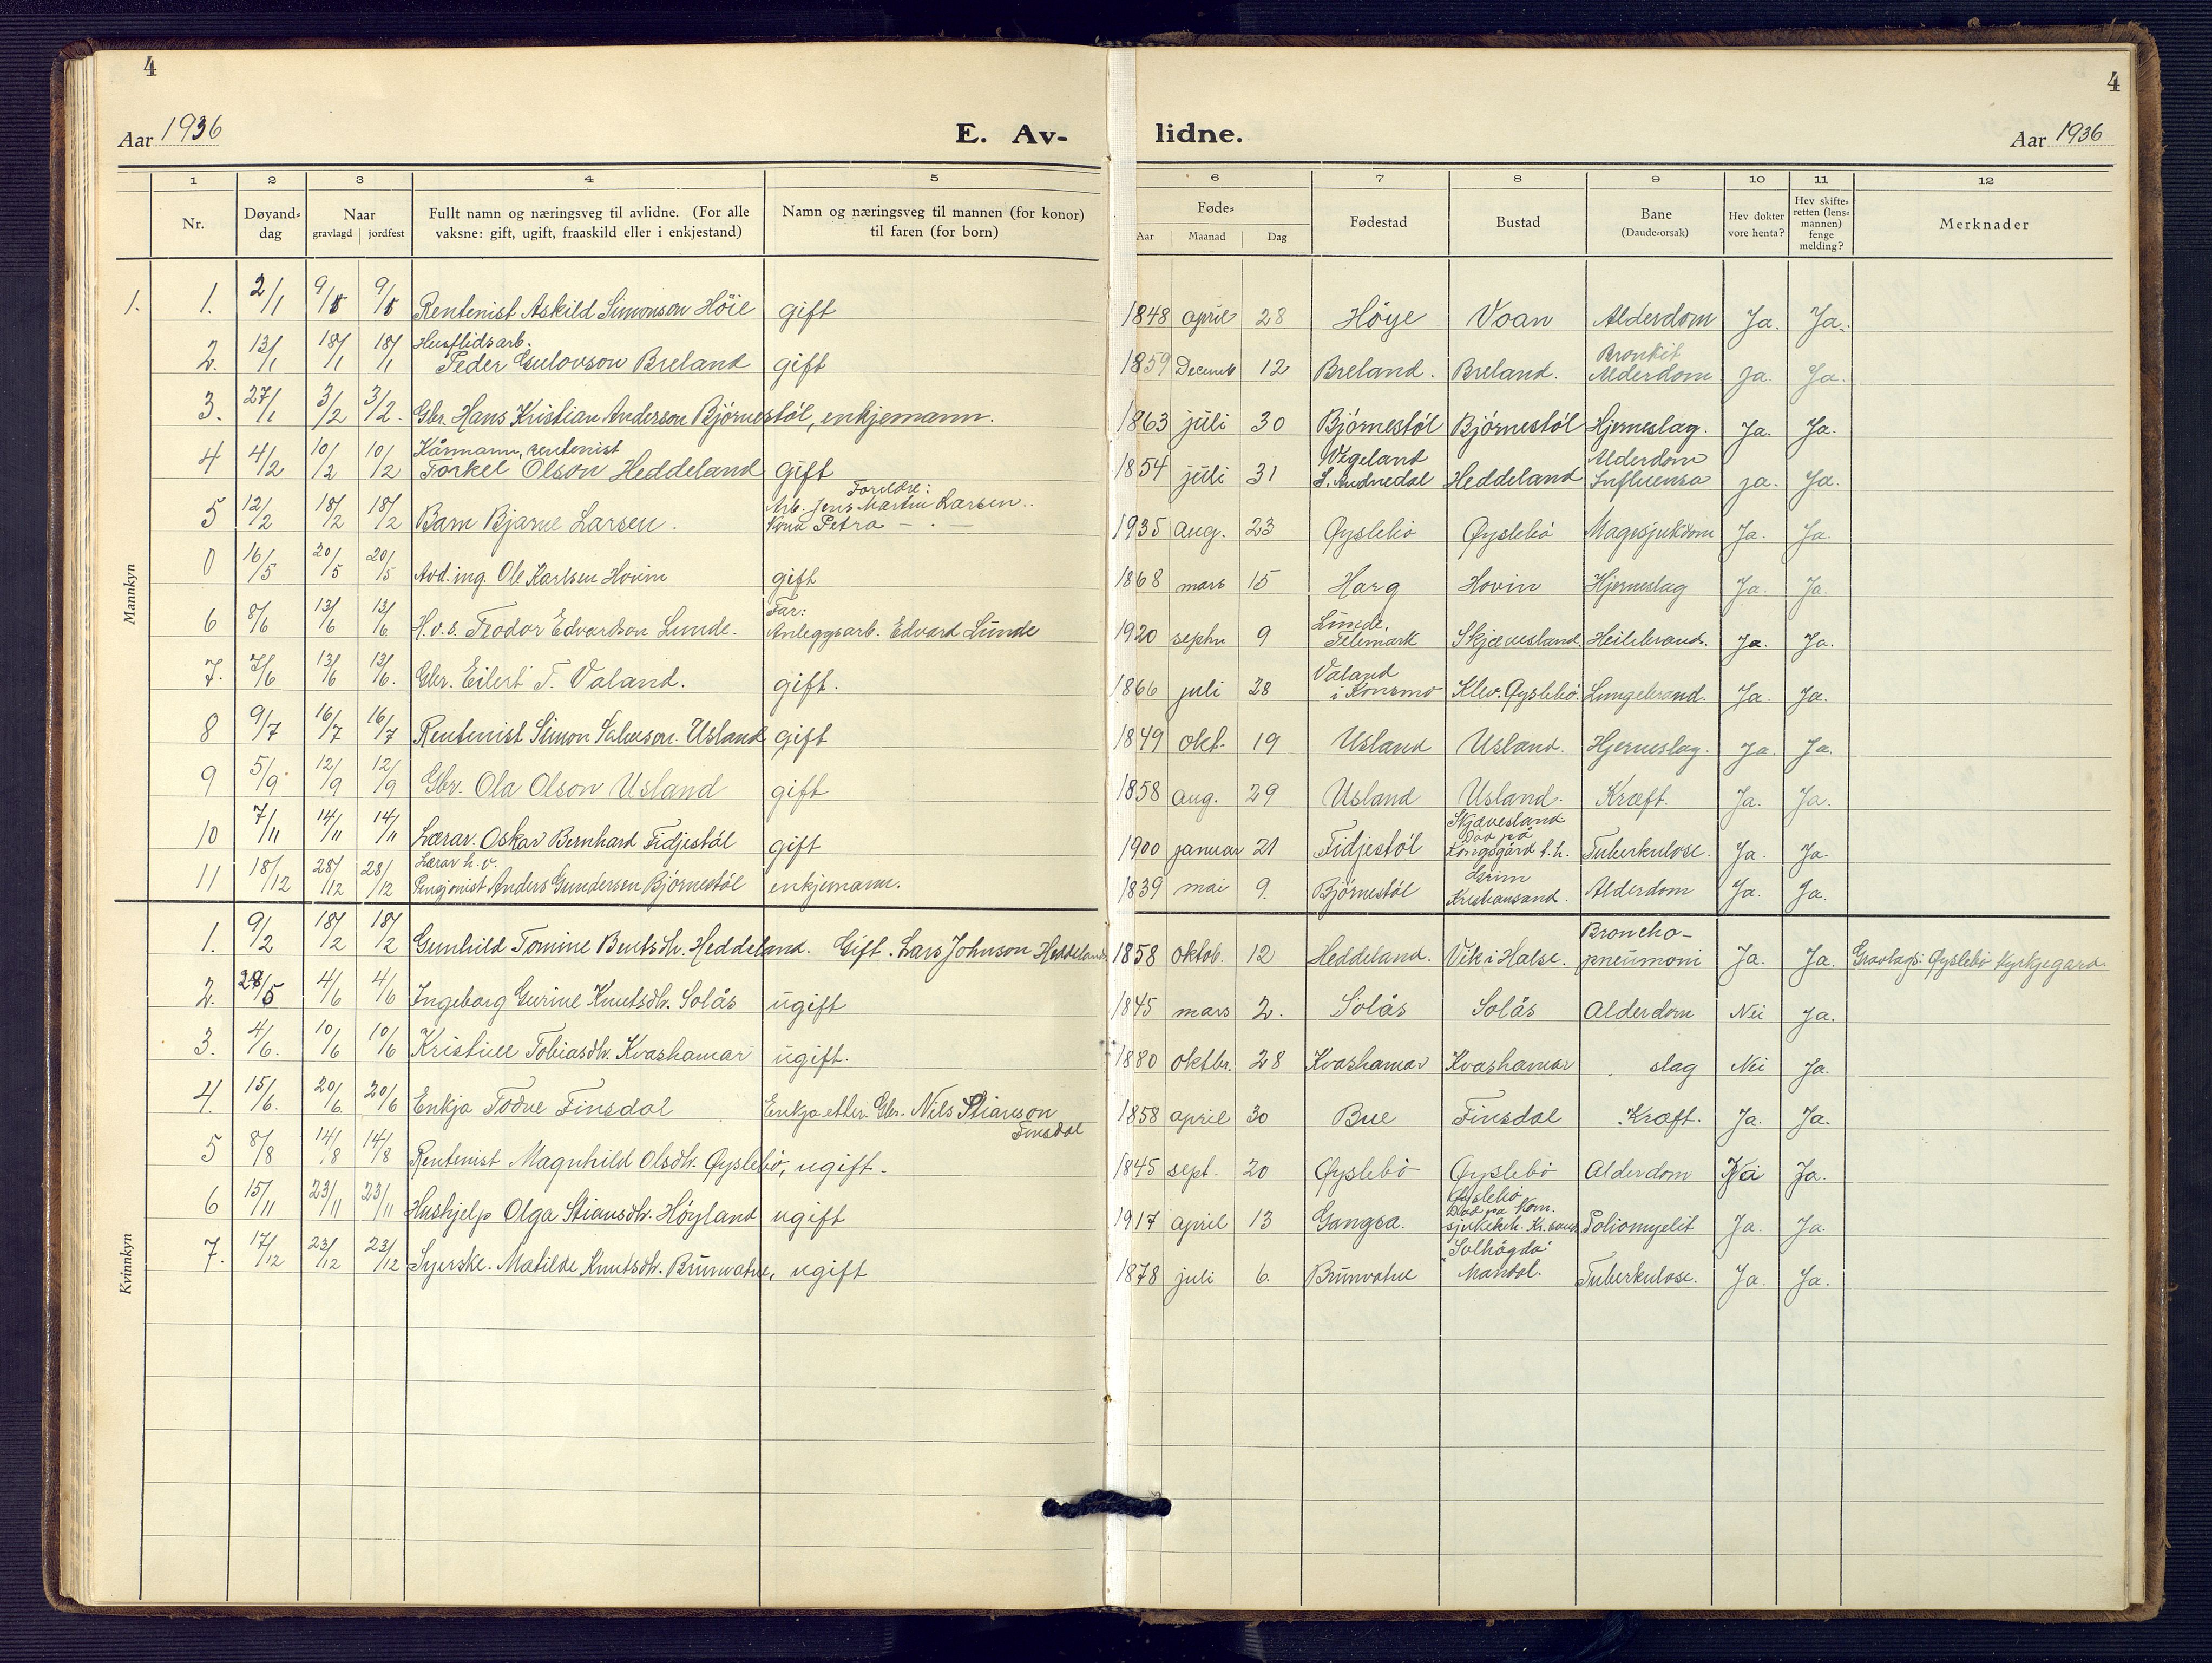 4
4
Aar 1936
E. Av-
lidne.
Aar 1936
1 2 3 4 5 6 7 8 9 10 11 12
Nr.
Døyand-dag
Naar gravlagd jordfest
Fullt namn og næringsveg til avlidne. (For alle vaksne: gift, ugift, fraaskild eller i enkjestand)
Namn og næringsveg til mannen (for konor) til faren (for born)
Føde- Aar Maanad Dag
Fødestad
Bustad
Bane (Daude-orsak)
Hev dokter vore henta?
Hev skifte-retten (lens-mannen) fenge melding?
Merknader
Mannkyn
1. 1. 2/1 9/1 9/1 Rentenist Askild Simonson Höie gift 1848 april 28 Höye Voan Alderdom Ja. Ja.
2. 13/1 18/1 18/1 Husflidsarb. Peder Gulovson Breland gift 1859 Decemb 12 Breland. Breland. Bronkit Alderdom Ja. Ja.
3. 27/1 3/2 3/2. Gbr. Hans Kristian Anderson Bjórnestól, enkjemann. 1863 juli 30 Bjórnestól Bjórnestól Hjerneslag. Ja. Ja.
4 4/2 10/2 10/2 Kårmann, rentenist Torkel Olson Heddeland gift 1854 juli 31 Vigeland S. Audnedal Heddeland Alderdom Influensa Ja. Ja.
5 12/2 18/2 18/2 Barn Bjarne Larsen. Foreldre: Arb. Jens Martin Larsen.. Kona Petra — . — 1935 aug. 23 Øyslebö Øyslebö Magesjukdom Ja. Ja.
0 16/5 20/5 20/5 Avd.ing. Ole Karlsen Hovin gift 1868 mars 15 Harg Hovin Hjerneslag Ja. Ja.
6 8/6 13/6 13/6. H.v.s. Teodor Edvardson Lunde. Far: Anleggsarb. Edvard Lunde 1920 septn 9 Lunde, Telemark Skjævesland. Heilebrand. Ja. Ja.
7. 7/6 13/6 13/6. Gbr. Eilert T. Valand. gift. 1866 juli 28 Valand i Konsmo Klev. Øyslebö. Lungebrand. Ja. Ja.
8 9/7 16/7 16/7 Rentenist Simon Salveson. Usland gift 1849 okt. 19 Usland Usland. Hjerneslag. Ja. Ja.
9 5/9 12/9 12/9 Gbr. Ola Olson Usland gift 1858 aug. 29 Usland Usland. Kræft. Ja. Ja.
10 7/11 14/11 14/11 Lærar. Oskar Bernhard Fidjestól gift 1900 januar 21 Fidjestól Skjævesland Död på Kongsgård t.h. Tuberkulose. Ja. Ja.
11 18/12 28/12 28/12 Lærar h.v. Pensjonist Anders Gundersen Bjórnestól enkjemann. 1839 mai 9. Bjórnestól Grim Kristiansand. Alderdom Ja. Ja.
Kvinnkyn
1. 9/2 18/2 18/2 Gunhild Tomine Bentsdtr. Heddeland. Gift. Lars Johnson Heddeland 1858 oktob. 12 Heddeland. Vik i Halse. Broncho-pneumoni Ja. Ja. Gravlagt: Øyslebö kyrkjegard.
2. 28/5 4/6 4/6 Ingeborg Gurine Knutsdtr. Solås ugift 1845 mars 2. Solås Solås Alderdom Nei Ja.
3. 4/6. 10/6 10/6 Kristine Tobiasdtr. Kvashamar ugift. 1880 oktbr. 28 Kvashamar Kvashamar slag Nei Ja.
4. 15/6. 20/6. 20/6 Enkja Todne Finsdal Enkja etter Gbr. Nils Stianson Finsdal 1858 april 30 Bue Finsdal Kræft. Ja. Ja.
5 8/8 14/8 14/8 Rentenist Magnhild Olsdtr. Øyslebö, ugift. 1845 sept. 20 Øyslebö Øyslebö Alderdom Nei Ja.
6 15/11 23/11 23/11 Hushjelp Olga Stiansdtr. Høyland ugift 1917 april 13 Gangsa. Øyslebö Död på Kom. sjukehh. Kr.sand Poliomyelit Ja. Ja.
7. 17/12 23/12 23/12 Syerske. Matilde Knutsdtr. Brunvatne, ugift 1878 juli 6. Brunvatne "Solhögda" Mandal. Tuberkulose. Ja. Ja.